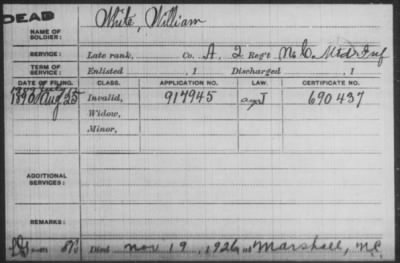 DEAD
White, William
NAME OF SOLDIER:
SERVICE: Late rank, Co. A, 2 Reg't N.C. Mtd Inf
TERM OF SERVICE: Enlisted , 1 Discharged , 1
DATE OF FILING. CLASS. APPLICATION NO. LAW. CERTIFICATE NO.
1890 Aug 25 Invalid, 917945 690437
Widow,
Minor,
ADDITIONAL SERVICES:
REMARKS:
Died Nov 19, 1926 at Marshall, N.C.